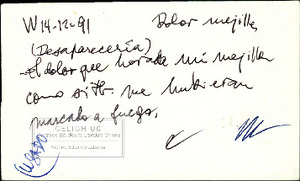 W14-12-91 Dolor mejilla
(Desaparecería)
El dolor que horada mi mejilla
como si me hubieran
marcado a fuego.
CELICH UC
usado